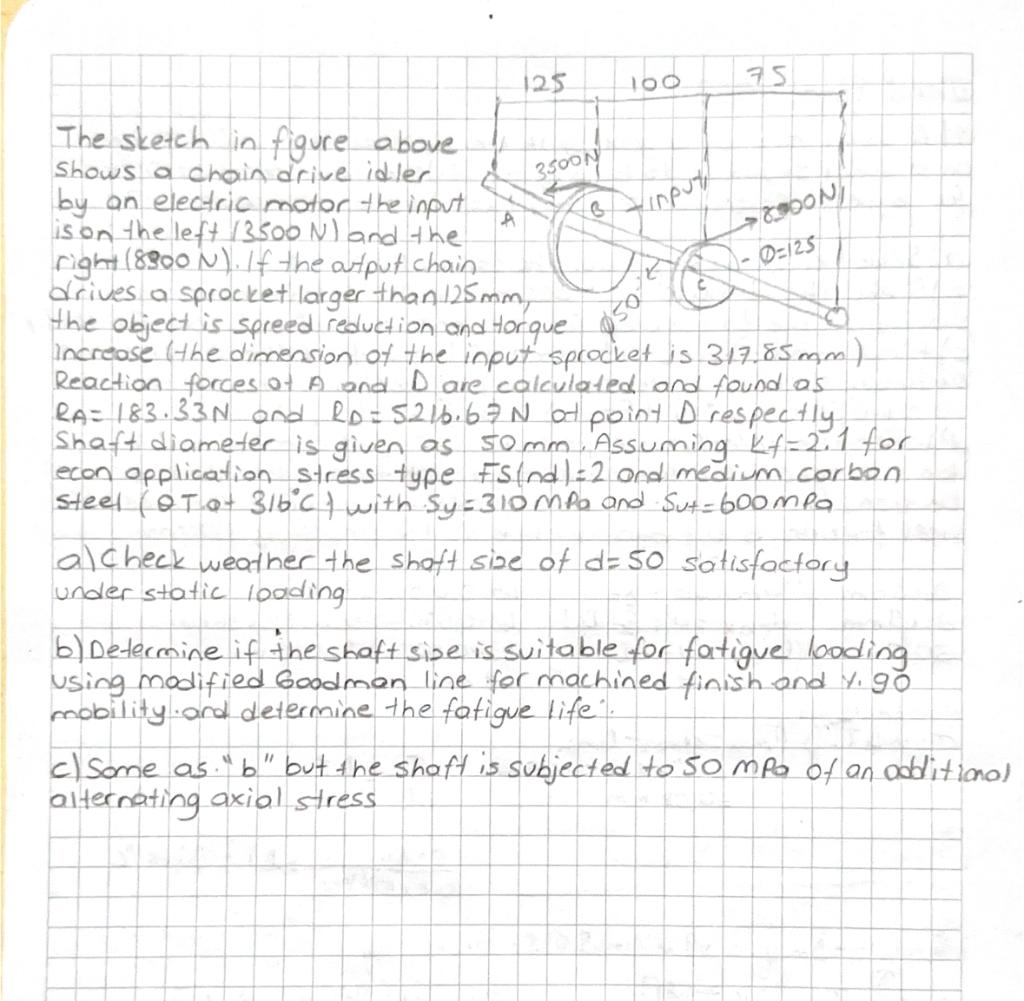 125 100 75
The sketch in figure above
shows a chain drive idler
by an electric motor the input
is on the left (3500 N) and the
right (8900 N). If the output chain
drives a sprocket larger than 125mm,
the object is spreed reduction and torque
increase (the dimension of the input sprocket is 317.85mm)
Reaction forces at A and D are calculated and found as
RA= 183.33N and RD= 5216.67 N at point D respectly
Shaft diameter is given as 50mm. Assuming kf=2.1 for
econ application stress type FS(nd)=2 and medium carbon
steel (QT at 316°C) with Sy=310 MPa and Sut=600mpa
a) Check weather the shaft size of d=50 satisfactory
under static loading
b) Determine if the shaft size is suitable for fatigue loading
using modified Goodman line for machined finish and %90
mobility and determine the fatigue life.
c) Same as "b" but the shaft is subjected to 50 mPa of an additional
alternating axial stress
3500N
A
B
input
8900N
Ø=125
C
Ø50